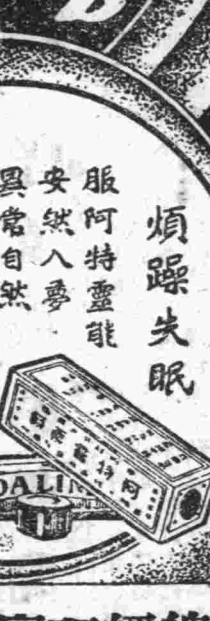 煩躁失眠
服阿特靈能
安然入夢
異常自然
阿特靈
DALIN